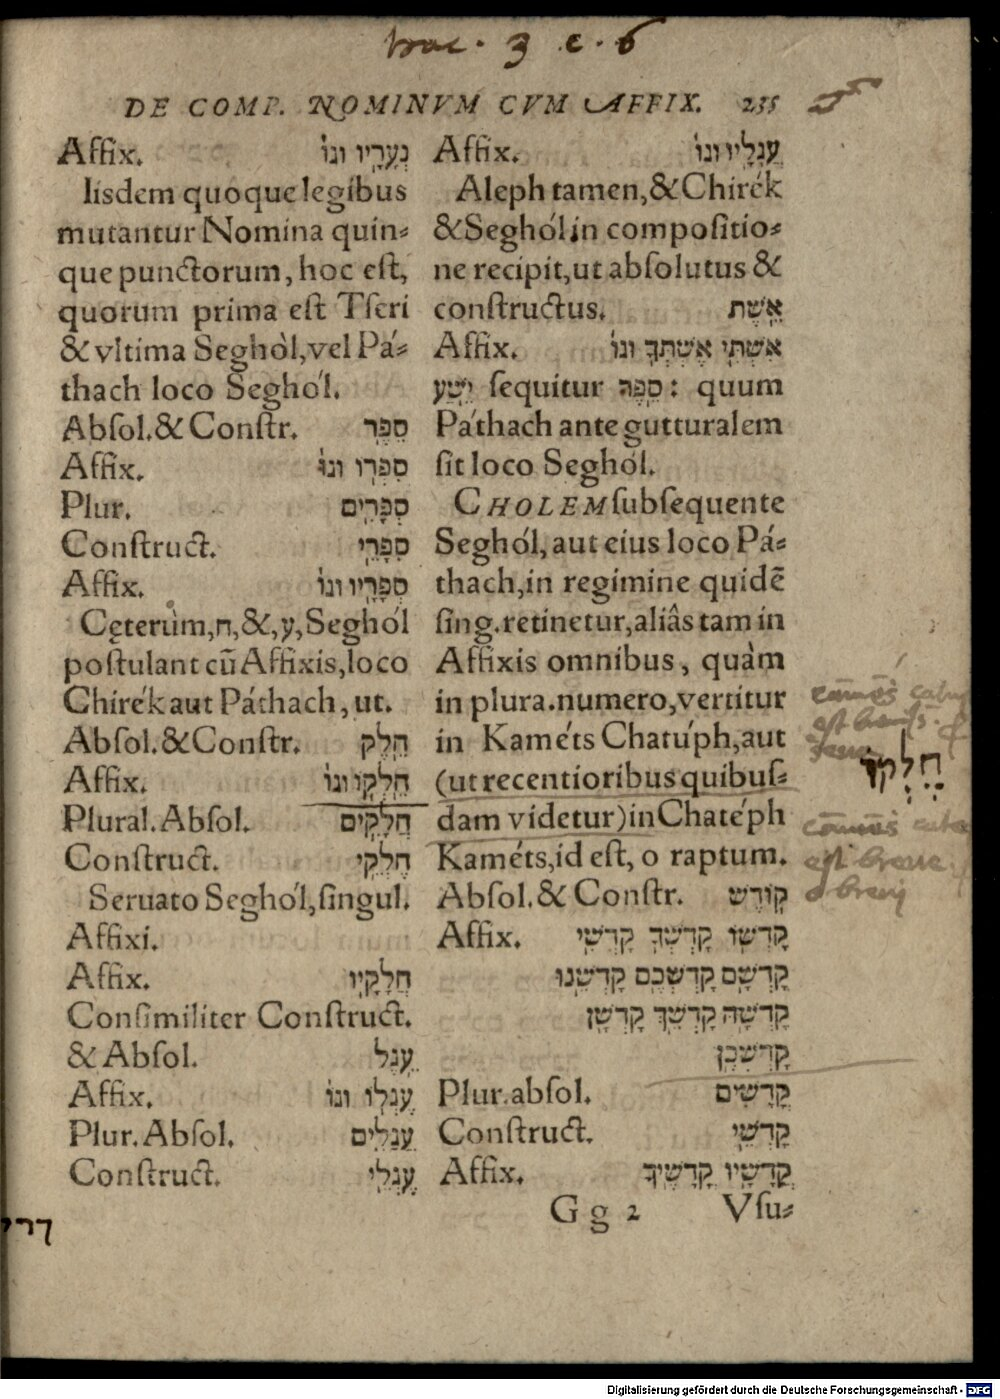 trac. 3 c. 6
DE COMP. NOMINVM CVM AFFIX. 235
Affix. נְעָרָיו וגו
Iisdem quoque legibus
mutantur Nomina quin⸗
que punctorum, hoc eſt,
quorum prima eſt Tſeri
& vltima Seghòl, vel Pá⸗
thach loco Seghól.
Abſol. & Conſtr. סֵפֶר
Affix. סִפְרוֹ וגו
Plur. סְפָרִים
Conſtruct. סִפְרֵי
Affix. סְפָרָיו וגו
Cęterùm, ח, &, ע, Seghól
poſtulant cũ Affixis, loco
Chirék aut Páthach, ut.
Abſol. & Conſtr. חֵלֶק
Affix. חֶלְקוֹ וגו
Plural. Abſol. חֲלָקִים
Conſtruct. חֶלְקֵי
Seruato Seghól, ſingul.
Affixi.
Affix. חֲלָקָיו
Conſimiliter Conſtruct.
& Abſol. עֵגֶל
Affix. עֶגְלוֹ וגו
Plur. Abſol. עֲגָלִים
Conſtruct. עֶגְלֵי
Affix. עֲגָלָיו וגו
Aleph tamen, & Chirék
& Seghól in compoſitio⸗
ne recipit, ut abſolutus &
conſtructus. אֵשֶׁת
Affix. אִשְׁתִּי אֶשְׁתְּךָ וגו
יֵשַׁע ſequitur סֵפֶר: quum
Páthach ante gutturalem
ſit loco Seghól.
CHOLEM ſubſequente
Seghól, aut eius loco Pá⸗
thach, in regimine quidẽ
ſing. retinetur, aliâs tam in
Affixis omnibus, quàm
in plura. numero, vertitur
in Kaméts Chatúph, aut
(ut recentioribus quibuſ⸗
dam videtur) in Chatéph
Kaméts, id eſt, o raptum.
Abſol. & Conſtr. קוֹדֶשׁ
Affix. קָדְשׁוֹ קָדְשְׁךָ קָדְשִׁי
קָדְשָׁם קָדְשְׁכֶם קָדְשֵׁנוּ
קָדְשָׁהּ קָדְשֵׁךְ קָדְשָׁן
קָדְשְׁכֶן
Plur. abſol. קֳדָשִׁים
Conſtruct. קָדְשֵׁי
Affix. קֳדָשָׁיו קֳדָשֶׁיךָ
G g 2 Vſu⸗
est breuis.
חֶלְקֵךְ
est breue
o breui
Digitalisierung gefördert durch die Deutsche Forschungsgemeinschaft - DFG